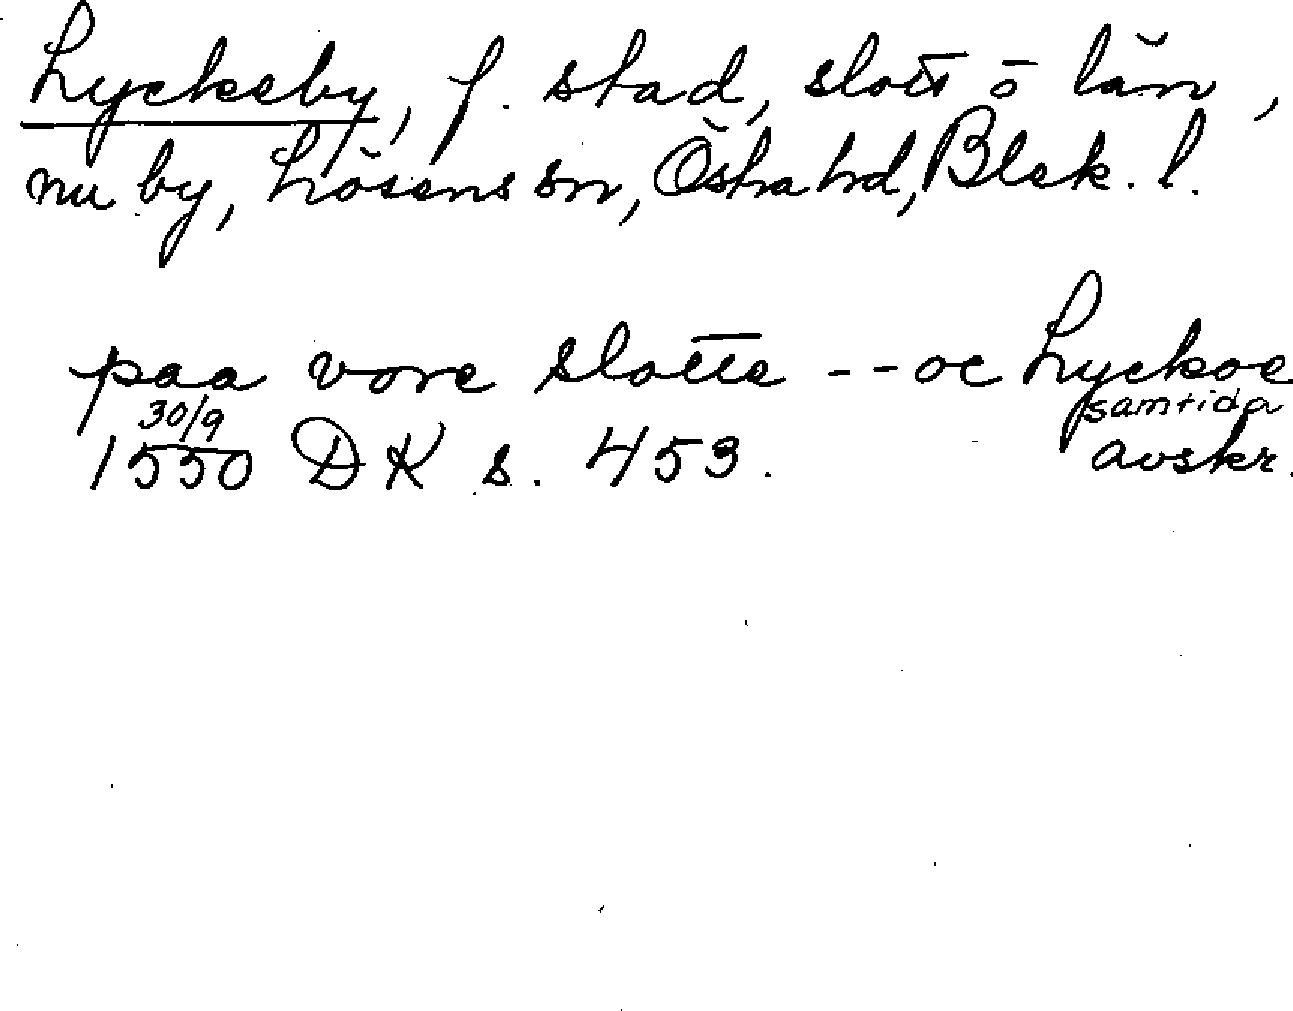 Lyckeby, f. stad, slott o län,
nu by, Lösens sn, Östra hd, Blek. l.
paa vore slotte -- oc Lyckoe
30/9 samtida
1550 DK s. 453. avskr.